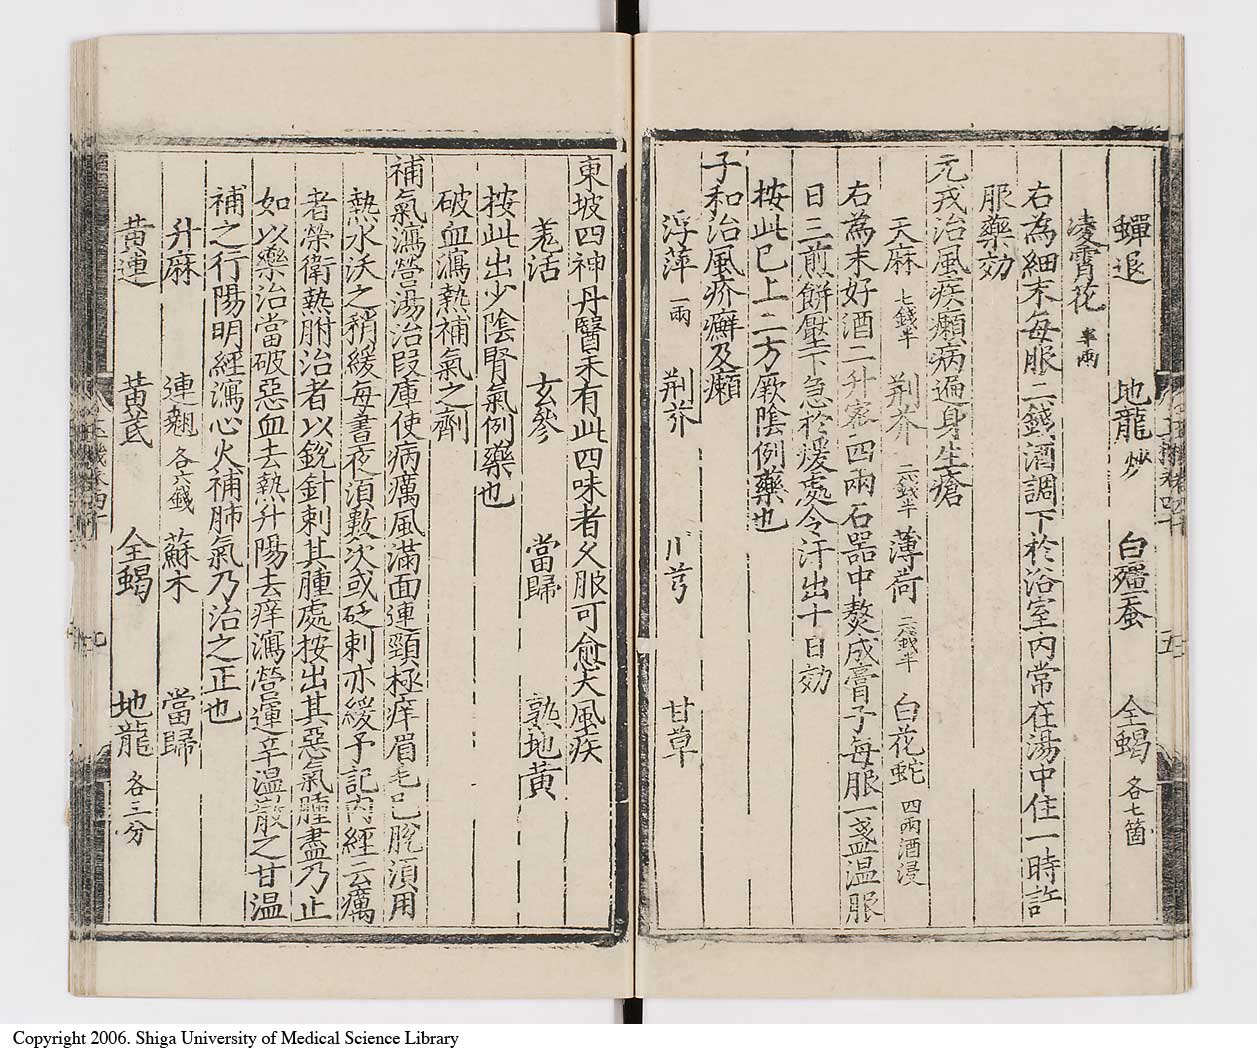 蟬退　地龍炒　白殭蚕　全蝎各七箇
凌霄花半兩
右為細末每服二錢酒調下於浴室內常在湯中住一時許
服藥効
元戎治風疾癩病遍身生瘡
天麻七錢半　荆芥二錢半　薄荷二錢半　白花蛇四兩酒浸
右為末好酒二升蜜四兩石器中熬成膏子每服一盞温服
日三煎餅壓下急於煖處令汗出十日効
按此已上二方厥陰例藥也
子和治風疥癬及癩
浮萍一兩　荆芥　川芎　甘草
東坡四神丹醫未有此四味者久服可愈大風疾
羌活　玄參　當歸　熟地黃
按此出少陰腎氣例藥也
破血瀉熱補氣之劑
補氣瀉營湯治叚庫使病癘風滿面連頸極痒眉毛已脫湏用
熱水沃之稍緩每晝夜湏數次或砭刺亦緩予記內經云癘
者榮衛熱胕治者以銳針刺其腫處按出其惡氣腫盡乃止
如以藥治當破惡血去熱升陽去痒瀉營運辛温散之甘温
補之行陽明經瀉心火補肺氣乃治之正也
升麻　連翹各六錢　蘇木　當歸
黃連　黃芪　全蝎　地龍各三分
Copyright 2006. Shiga University of Medical Science Library